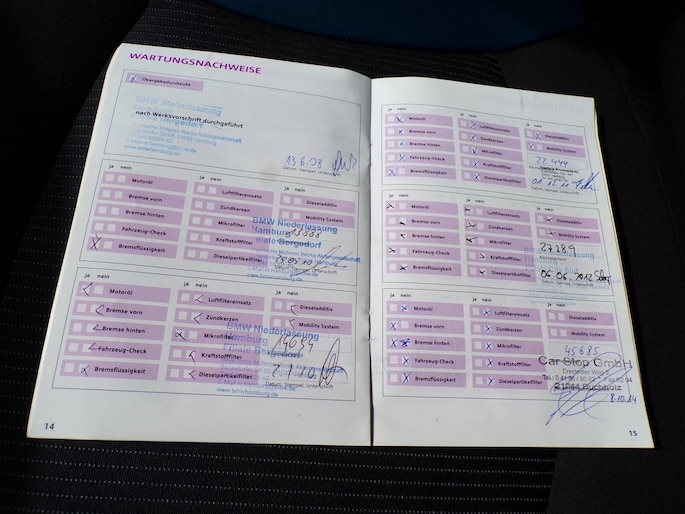 WARTUNGSNACHWEISE
Übergabedurchsicht
BMW Niederlassung
nach Werksvorschrift durchgeführt
13.6.08
Datum, Stempel, Unterschrift
ja nein
ja nein
ja nein
Motoröl
Luftfiltereinsatz
Dieseladditiv
Bremse vorn
Zündkerzen
Mobility System
Bremse hinten
Mikrofilter
Fahrzeug-Check
Kraftstofffilter
Bremsflüssigkeit
Dieselpartikelfilter
BMW Niederlassung
Hamburg
Filiale Bergedorf
Datum, Stempel, Unterschrift
ja nein
ja nein
ja nein
Motoröl
Luftfiltereinsatz
Dieseladditiv
Bremse vorn
Zündkerzen
Mobility System
Bremse hinten
Mikrofilter
Fahrzeug-Check
Kraftstofffilter
Bremsflüssigkeit
Dieselpartikelfilter
BMW Niederlassung
Hamburg
Filiale Bergedorf
14684
Datum, Stempel, Unterschrift
www.bmwhamburg.de
14
ja nein
ja nein
ja nein
Motoröl
Luftfiltereinsatz
Dieseladditiv
Bremse vorn
Zündkerzen
Mobility System
Bremse hinten
Mikrofilter
22 444
Fahrzeug-Check
Kraftstofffilter
Bremsflüssigkeit
Dieselpartikelfilter
Datum, Stempel, Unterschrift
ja nein
ja nein
ja nein
Motoröl
Luftfiltereinsatz
Dieseladditiv
Bremse vorn
Zündkerzen
Mobility System
Bremse hinten
Mikrofilter
27.289
Fahrzeug-Check
Kraftstofffilter
Bremsflüssigkeit
Dieselpartikelfilter
06.06.2012
Datum, Stempel, Unterschrift
ja nein
ja nein
ja nein
Motoröl
Luftfiltereinsatz
Dieseladditiv
Bremse vorn
Zündkerzen
Mobility System
Bremse hinten
Mikrofilter
45685
Fahrzeug-Check
Kraftstofffilter
Car Stop GmbH
Bremsflüssigkeit
Dieselpartikelfilter
21244 Buchholz
8.10.14
15